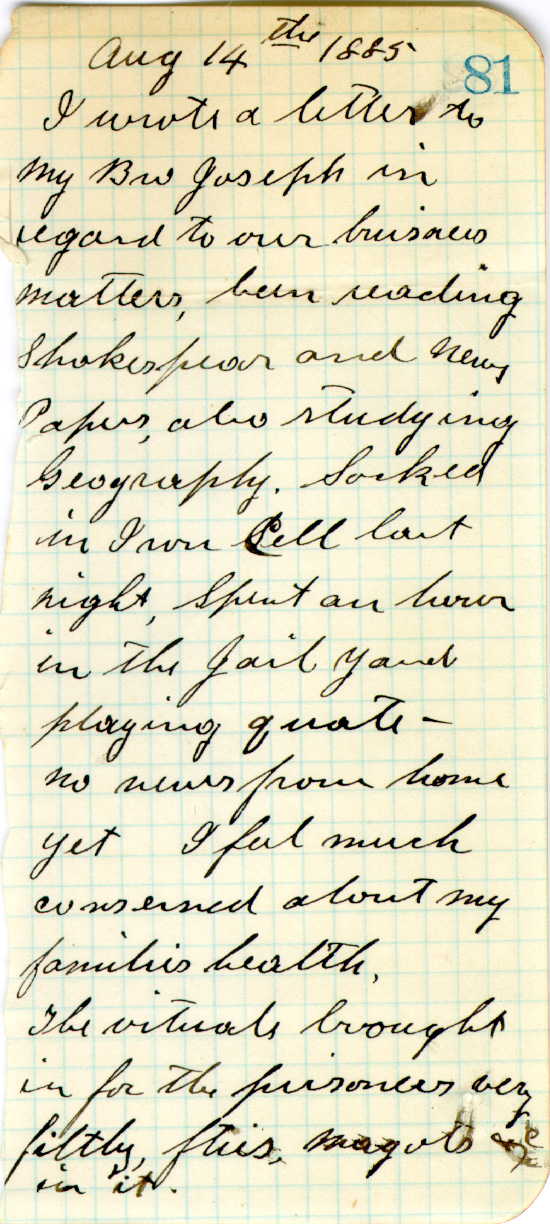 Aug 14th 1885
81
I wrote a letter to
my Bro Joseph in
regard to our buisness
matters, been reading
Shakespear and News
Papers, also studying
Geography. Locked
in Iron Cell last
night, Spent an hour
in the Jail Yard
playing quate –
no news from home
yet I feel much
conserned about my
families health,
The vituals brought
in for the prisoners very
filthy, flies, magots &c
in it.